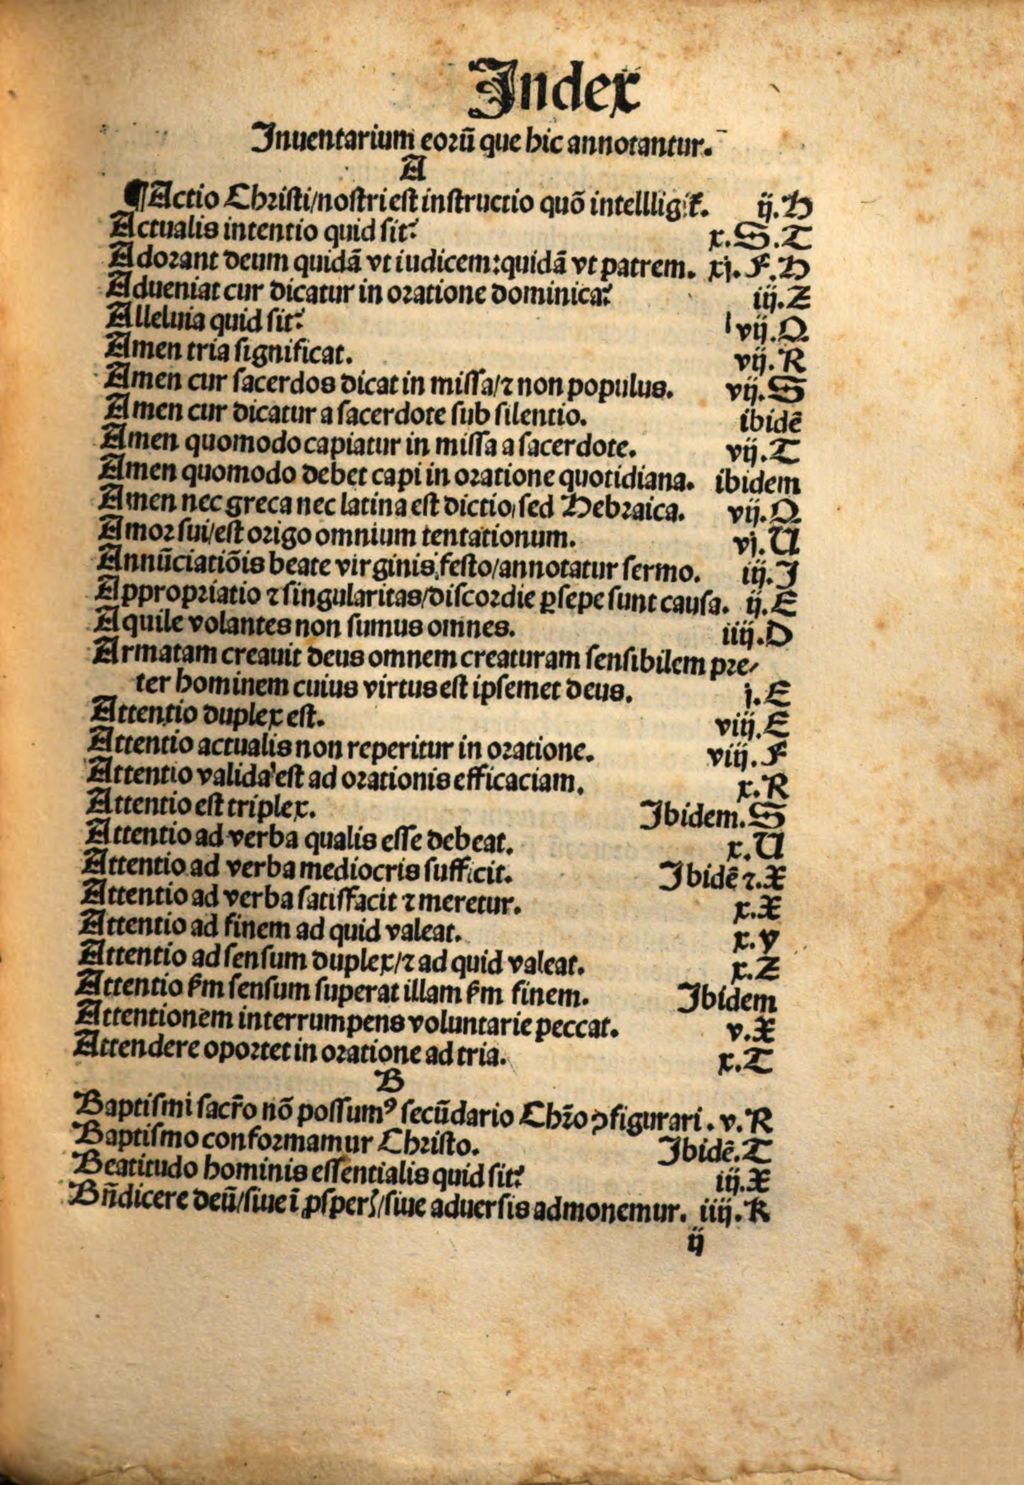 Index
Inuentarium eorū que hic annotantur.
A
¶Actio Christi/nostri est instructio quō intellligit᷑. ij.H
Actualis intentio quid sit? x.S.T
Adorant deum quidā vt iudicem:quidā vt patrem. xj.F.H
Adueniat cur dicatur in oratione dominica? iij.Z
Alleluia quid sit? vij.Q
Amen tria significat. vij.R
Amen cur sacerdos dicat in missa/⁊ non populus. vij.S
Amen cur dicatur a sacerdote sub silentio. ibidē
Amen quomodo capiatur in missa a sacerdote. vij.T
Amen quomodo debet capi in oratione quotidiana. ibidem
Amen nec greca nec latina est dictio/sed Hebraica. vij.Q
Amor sui/est origo omnium tentationum. vj.U
Annūciatiōis beate virginis festo/annotatur sermo. iij.J
Appropriatio ⁊ singularitas/discordie ꝑsepe sunt causa. ij.E
Aquile volantes non sumus omnes. iiij.D
Armatam creauit deus omnem creaturam sensibilem pre/
ter hominem cuius virtus est ipsemet deus. j.E
Attentio duplex est. viij.E
Attentio actualis non reperitur in oratione. viij.F
Attentio valida est ad orationis efficaciam. x.R
Attentio est triplex. Ibidem.S
Attentio ad verba qualis esse debeat. x.U
Attentio ad verba mediocris sufficit. Ibidē ⁊.X
Attentio ad verba satisfacit ⁊ meretur. x.X
Attentio ad finem ad quid valeat. x.y
Attentio ad sensum duplex/⁊ ad quid valeat. x.Z
Attentio ẜm sensum superat illam ẜm finem. Ibidem
Attentionem interrumpens voluntarie peccat. v.X
Attendere oportet in oratione ad tria. x.T
B
Baptismi sacr̄o nō possumꝰ secūdario Chr̄o ꝯfigurari. v.R
Baptismo conformamur Christo. Ibidē.T
Beatitudo hominis essentialis quid sit? iij.X
Bn̄dicere deū/siue ī ꝓsperꝭ/siue aduersis admonemur. iiij.K
ij